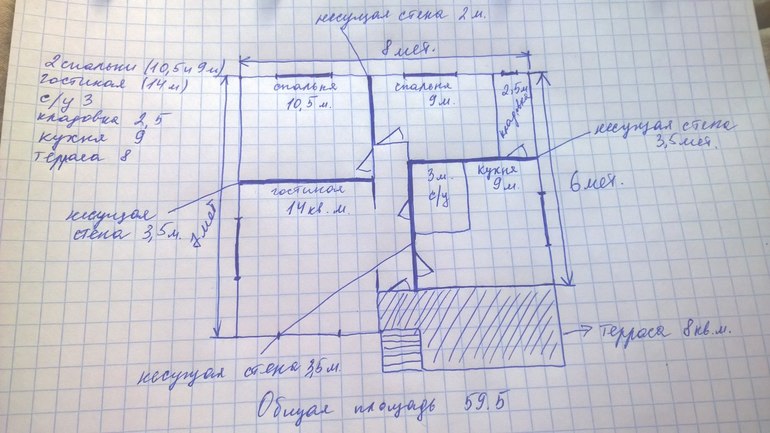 несущая стена 2 м.
8 мет.
2 спальни (10,5 и 9 м)
гостиная (14 м)
с/у 3
кладовка 2,5
кухня 9
терраса 8
спальня
10,5 м.
спальня
9 м.
2,5 м
кладовка
несущая стена
3,5 мет.
3 м.
с/у
кухня
9 м.
6 мет.
гостиная
14 кв. м.
несущая
стена 3,5 м.
7 мет
терраса 8 кв. м.
несущая стена 3,5 м.
Общая площадь 59.5